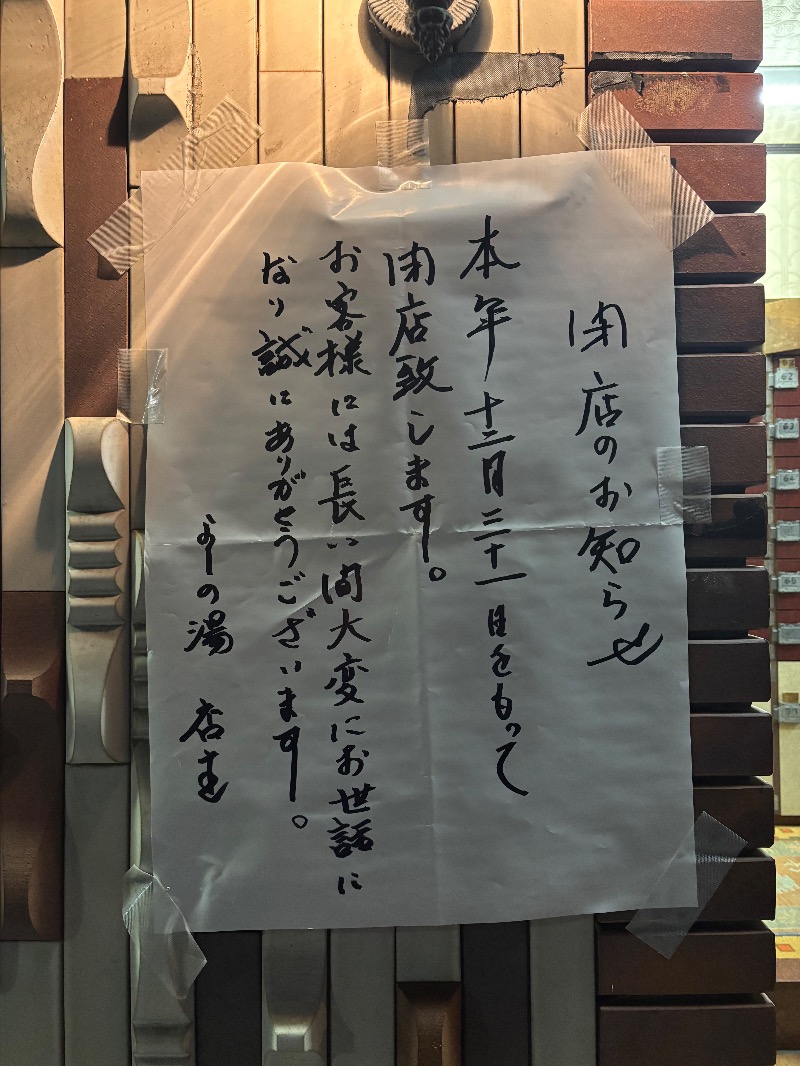 閉店のお知らせ
本年十二月三十一日をもって
閉店致します。
お客様には長い間大変にお世話に
なり誠にありがとうございます。
よしの湯 店主
62
63
64